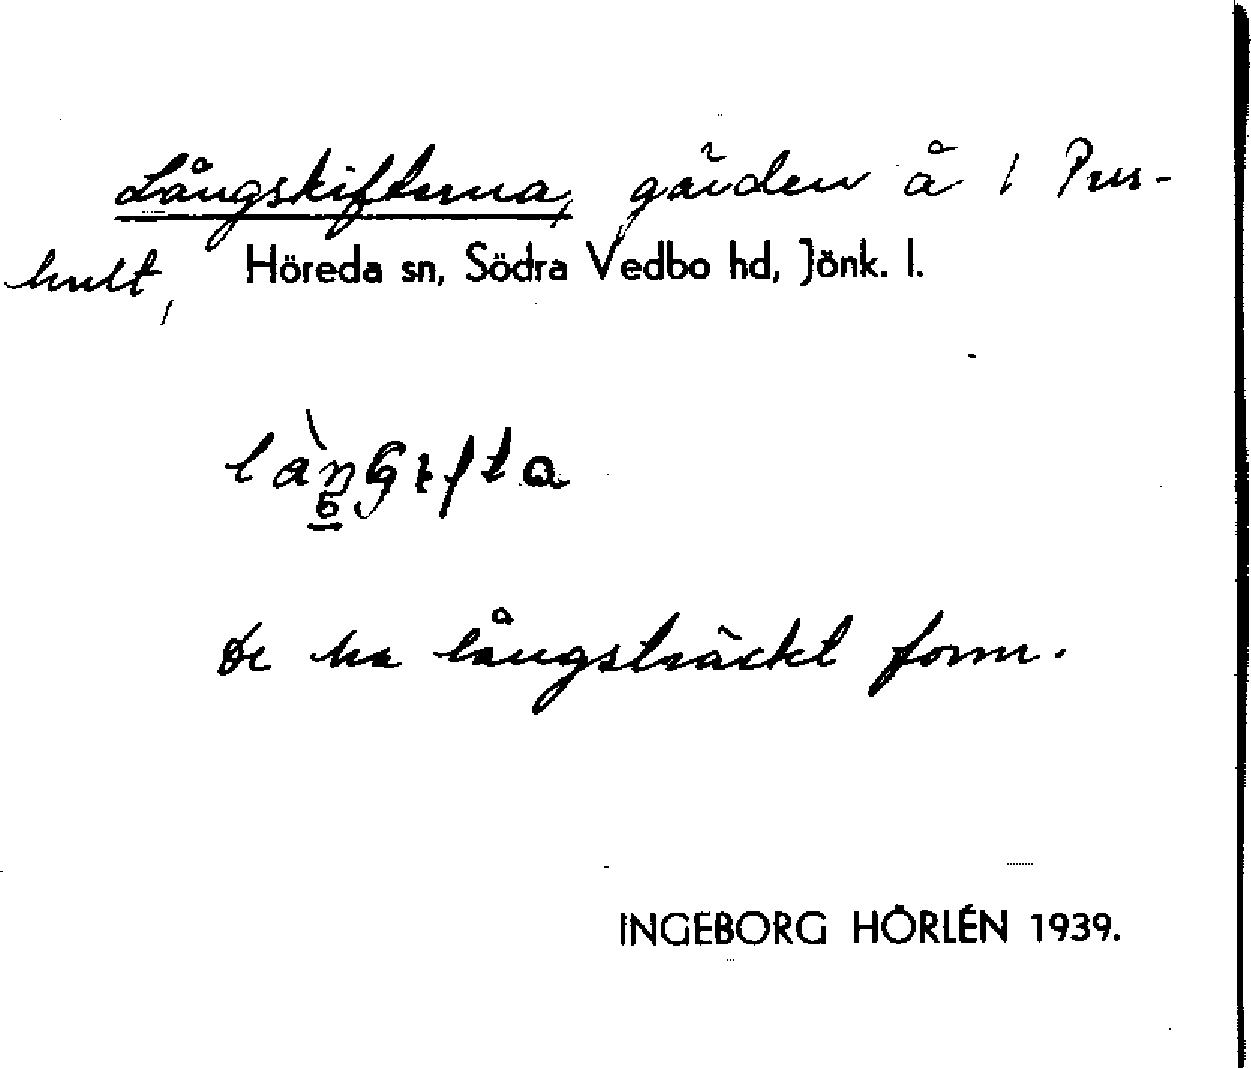 Långskifterna, gärden å 1 Purs-
hult, Höreda sn, Södra Vedbo hd, Jönk. l.
De ha långsträckt form.
INGEBORG HÖRLÉN 1939.